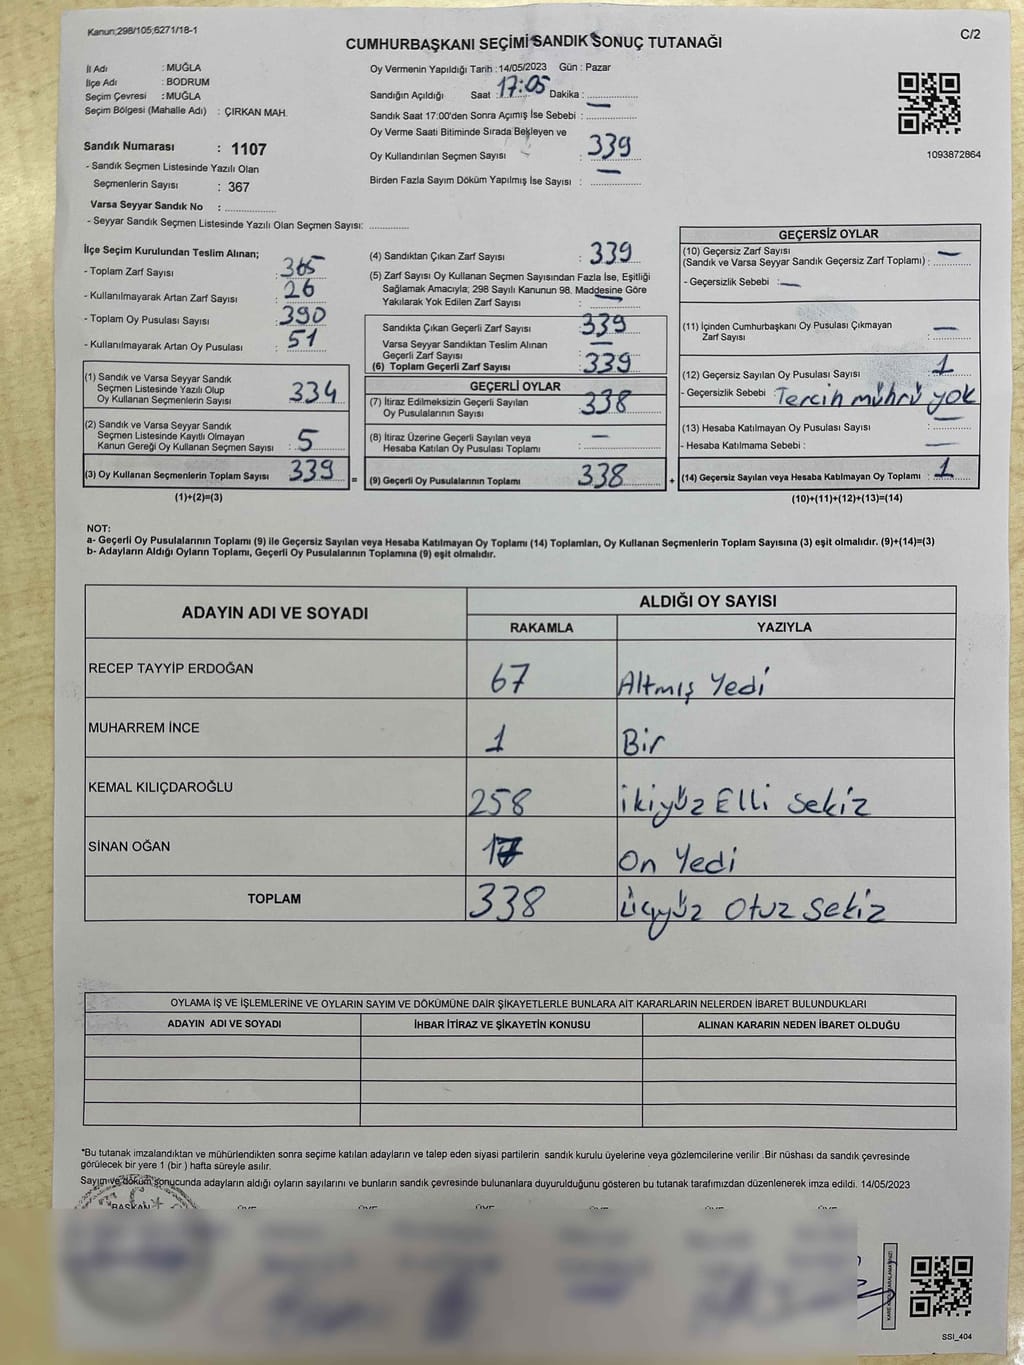 Kanun;298/105;6271/18-1
C/2
CUMHURBAŞKANI SEÇİMİ SANDIK SONUÇ TUTANAĞI
İl Adı : MUĞLA
İlçe Adı : BODRUM
Seçim Çevresi : MUĞLA
Seçim Bölgesi (Mahalle Adı) : ÇIRKAN MAH.
Sandık Numarası : 1107
- Sandık Seçmen Listesinde Yazılı Olan
Seçmenlerin Sayısı : 367
Varsa Seyyar Sandık No : ..............
- Seyyar Sandık Seçmen Listesinde Yazılı Olan Seçmen Sayısı: ............
Oy Vermenin Yapıldığı Tarih :14/05/2023 Gün : Pazar
Sandığın Açıldığı Saat : 17:05 Dakika : ..............
Sandık Saat 17:00'den Sonra Açımış İse Sebebi : —
Oy Verme Saati Bitiminde Sırada Bekleyen ve
Oy Kullandırılan Seçmen Sayısı : 339
Birden Fazla Sayım Döküm Yapılmış İse Sayısı : —
1093872864
İlçe Seçim Kurulundan Teslim Alınan;
- Toplam Zarf Sayısı : 365
- Kullanılmayarak Artan Zarf Sayısı : 26
- Toplam Oy Pusulası Sayısı : 390
- Kullanılmayarak Artan Oy Pusulası : 51
(1) Sandık ve Varsa Seyyar Sandık
Seçmen Listesinde Yazılı Olup
Oy Kullanan Seçmenlerin Sayısı : 334
(2) Sandık ve Varsa Seyyar Sandık
Seçmen Listesinde Kayıtlı Olmayan
Kanun Gereği Oy Kullanan Seçmen Sayısı : 5
(3) Oy Kullanan Seçmenlerin Toplam Sayısı : 339 =
(1)+(2)=(3)
(4) Sandıktan Çıkan Zarf Sayısı : 339
(5) Zarf Sayısı Oy Kullanan Seçmen Sayısından Fazla İse, Eşitliği
Sağlamak Amacıyla; 298 Sayılı Kanunun 98. Maddesine Göre
Yakılarak Yok Edilen Zarf Sayısı : —
Sandıkta Çıkan Geçerli Zarf Sayısı : 339
Varsa Seyyar Sandıktan Teslim Alınan
Geçerli Zarf Sayısı : —
(6) Toplam Geçerli Zarf Sayısı : 339
GEÇERLİ OYLAR
(7) İtiraz Edilmeksizin Geçerli Sayılan
Oy Pusulalarının Sayısı : 338
(8) İtiraz Üzerine Geçerli Sayılan veya
Hesaba Katılan Oy Pusulası Toplamı : —
(9) Geçerli Oy Pusulalarının Toplamı : 338 +
GEÇERSİZ OYLAR
(10) Geçersiz Zarf Sayısı
(Sandık ve Varsa Seyyar Sandık Geçersiz Zarf Toplamı) : —
- Geçersizlik Sebebi : —
(11) İçinden Cumhurbaşkanı Oy Pusulası Çıkmayan
Zarf Sayısı : —
(12) Geçersiz Sayılan Oy Pusulası Sayısı : 1
- Geçersizlik Sebebi : Tercih mührü yok
(13) Hesaba Katılmayan Oy Pusulası Sayısı : —
- Hesaba Katılmama Sebebi : —
(14) Geçersiz Sayılan veya Hesaba Katılmayan Oy Toplamı : 1
(10)+(11)+(12)+(13)=(14)
NOT:
a- Geçerli Oy Pusulalarının Toplamı (9) ile Geçersiz Sayılan veya Hesaba Katılmayan Oy Toplamı (14) Toplamları, Oy Kullanan Seçmenlerin Toplam Sayısına (3) eşit olmalıdır. (9)+(14)=(3)
b- Adayların Aldığı Oyların Toplamı, Geçerli Oy Pusulalarının Toplamına (9) eşit olmalıdır.
ADAYIN ADI VE SOYADI ALDIĞI OY SAYISI
RAKAMLA YAZIYLA
RECEP TAYYİP ERDOĞAN 67 Altmış Yedi
MUHARREM İNCE 1 Bir
KEMAL KILIÇDAROĞLU 258 ikiyüz Elli Sekiz
SİNAN OĞAN 17 On Yedi
TOPLAM 338 Üçyüz Otuz Sekiz
OYLAMA İŞ VE İŞLEMLERİNE VE OYLARIN SAYIM VE DÖKÜMÜNE DAİR ŞİKAYETLERLE BUNLARA AİT KARARLARIN NELERDEN İBARET BULUNDUKLARI
ADAYIN ADI VE SOYADI İHBAR İTİRAZ VE ŞİKAYETİN KONUSU ALINAN KARARIN NEDEN İBARET OLDUĞU
*Bu tutanak imzalandıktan ve mühürlendikten sonra seçime katılan adayların ve talep eden siyasi partilerin sandık kurulu üyelerine veya gözlemcilerine verilir .Bir nüshası da sandık çevresinde
görülecek bir yere 1 (bir ) hafta süreyle asılır.
Sayım ve döküm sonucunda adayların aldığı oyların sayılarını ve bunların sandık çevresinde bulunanlara duyurulduğunu gösteren bu tutanak tarafımızdan düzenlenerek imza edildi. 14/05/2023
BAŞKAN ÜYE ÜYE ÜYE ÜYE ÜYE
SSI_404